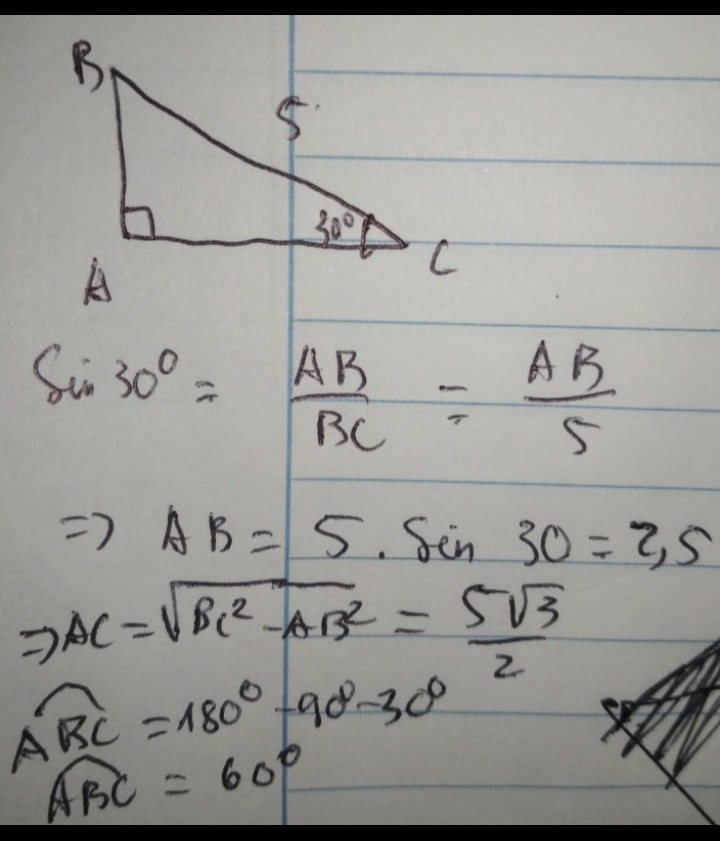 B
5
30°
A
C
Sin 30° = AB/BC = AB/5
=> AB = 5 . Sin 30 = 2,5
=> AC = √(BC² - AB²) = 5√3/2
ABC = 180° - 90° - 30°
ABC = 60°